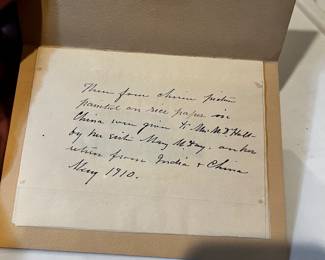 These four china pictures
painted on rice paper in
China were given to Mr. M. F. Hall
by his sister Mary M. Day. on her
return from India & China
May 1910.